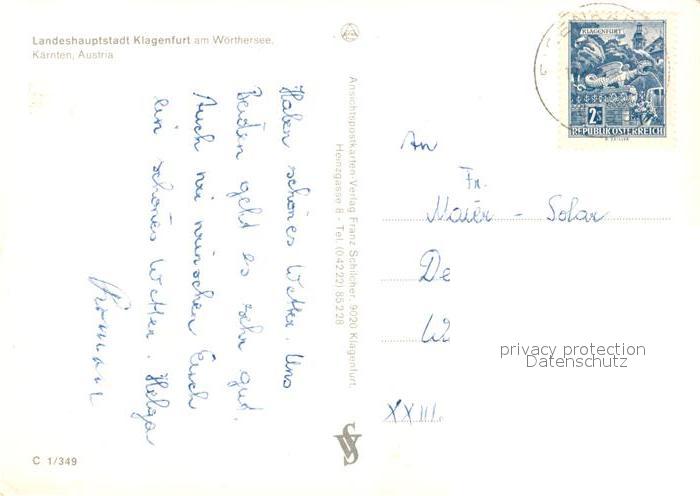 Landeshauptstadt Klagenfurt am Wörthersee,
Kärnten, Austria
Haben schönes Wetter. Uns
Beiden geht es sehr gut.
Auch wir wünschen Euch
ein schönes Wetter. Helga
C 1/349
Ansichtspostkarten-Verlag Franz Schilcher, 9020 Klagenfurt,
Heinzgasse 8 - Tel. (04222) 85228
KLAGENFURT
2S
REPUBLIK ÖSTERREICH
An
Fr.
Maier - Solar
De
W
privacy protection
Datenschutz
XXIII.